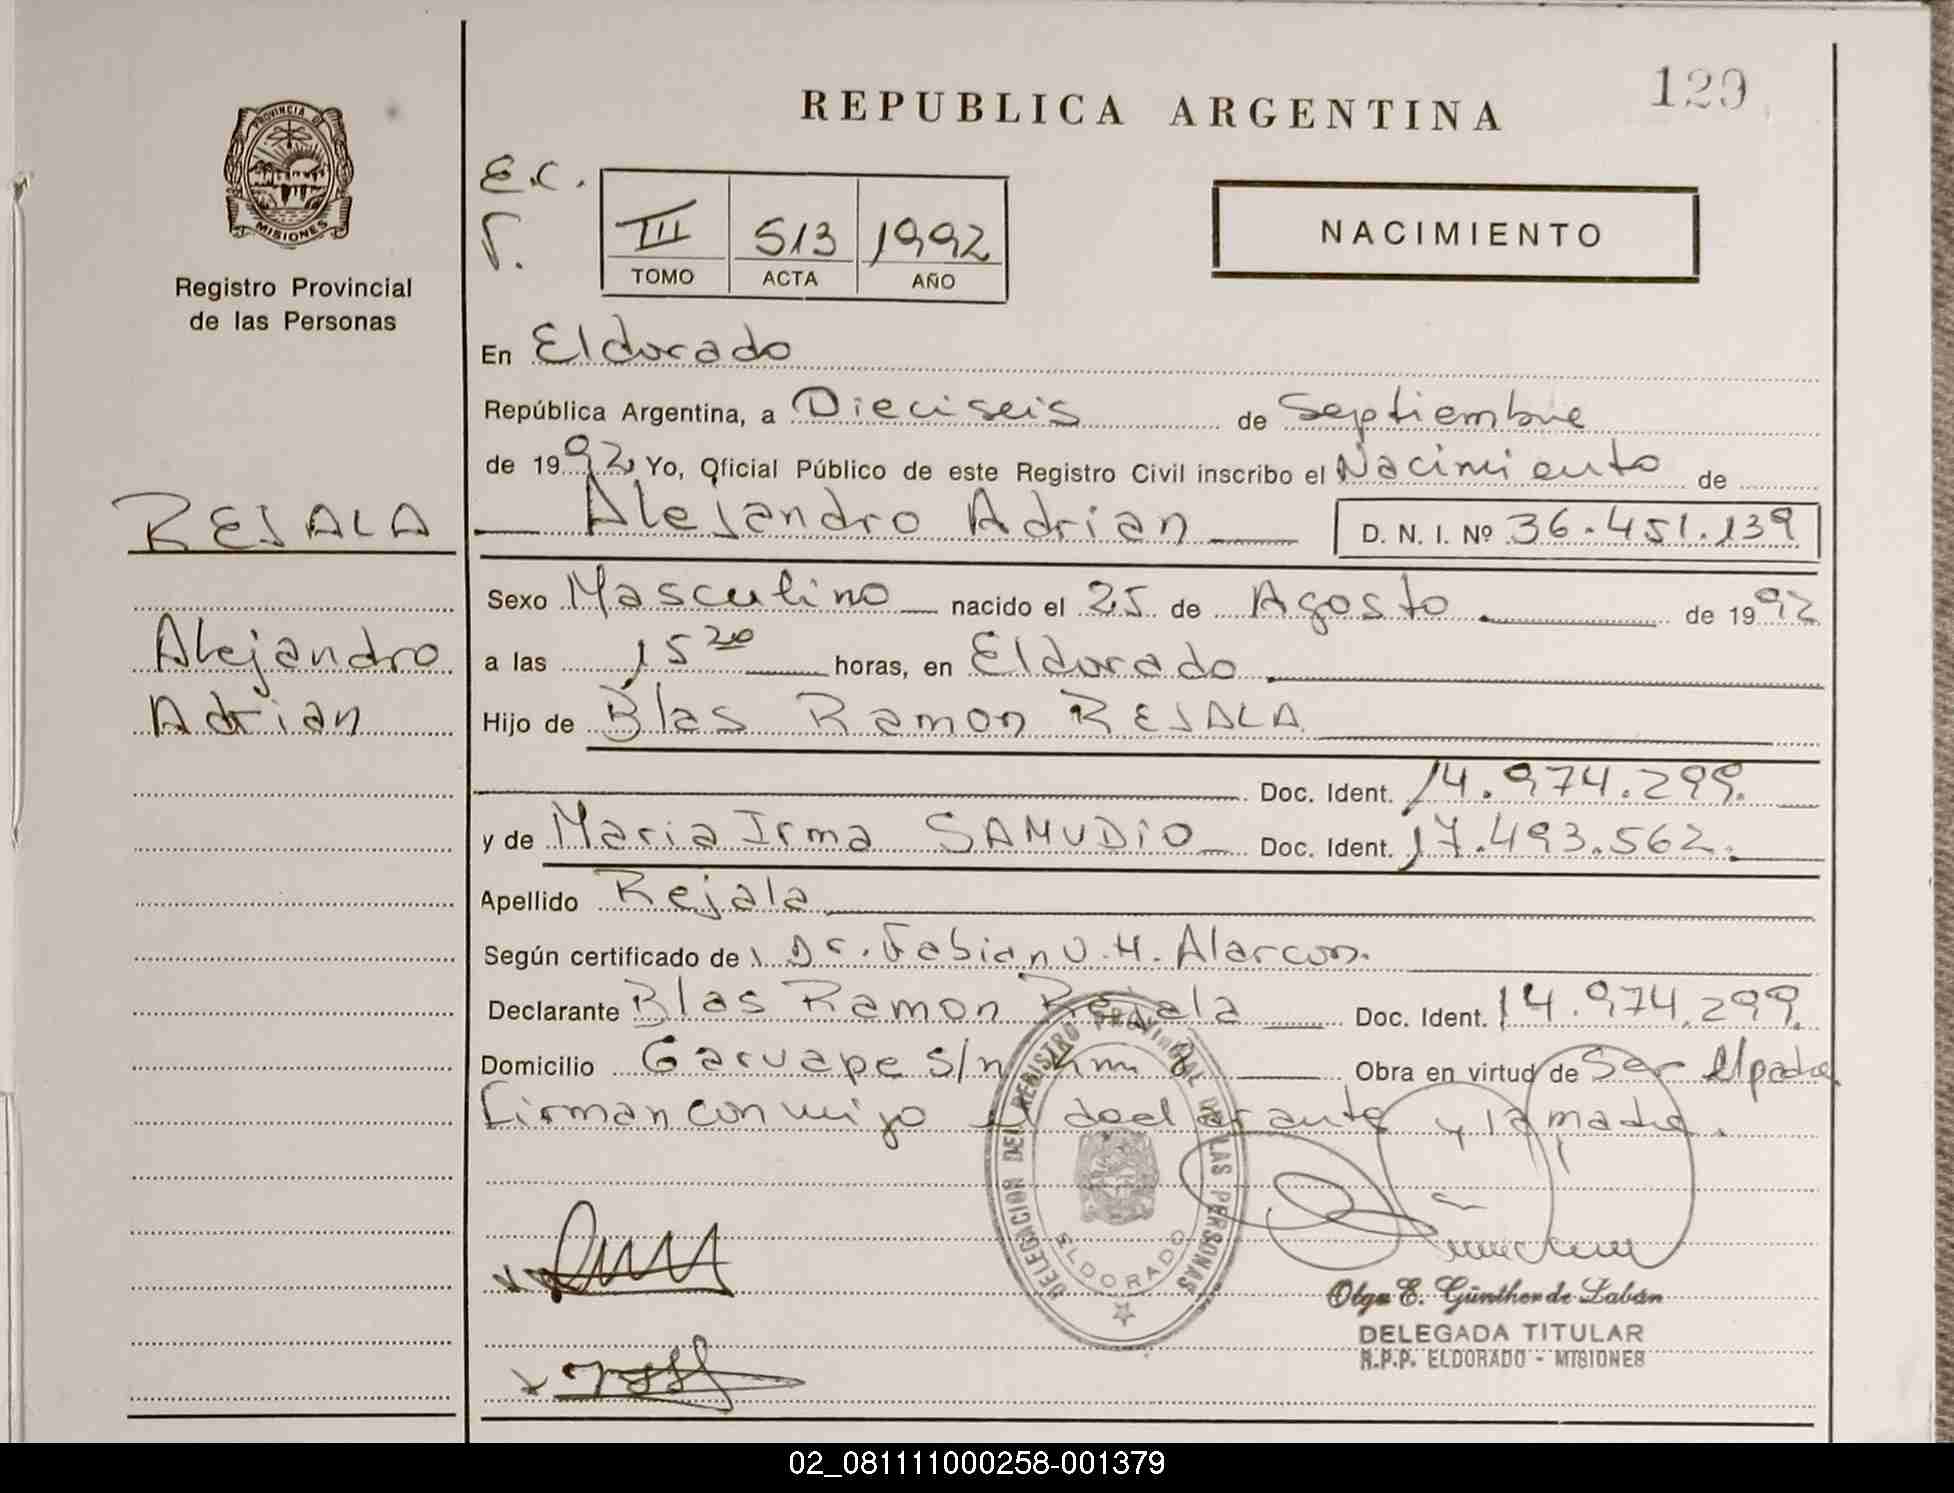 129
REPUBLICA ARGENTINA
PROVINCIA DE MISIONES
Registro Provincial
de las Personas
E.C.
III 513 1992
TOMO ACTA AÑO
NACIMIENTO
En Eldorado
República Argentina, a Dieciseis de Septiembre
de 1992 Yo, Oficial Público de este Registro Civil inscribo el Nacimiento de
REJALA
Alejandro Adrian D. N. I. Nº 36.451.139
Sexo Masculino nacido el 25 de Agosto de 1992
Alejandro
a las 15 20 horas, en Eldorado
Adrian
Hijo de Blas Ramon REJALA
Doc. Ident. 14.974.299.
y de Maria Irma SAMUDIO Doc. Ident. 17.493.562.
Apellido Rejala
Según certificado de Dr. Fabian V.H. Alarcon.
Declarante Blas Ramon Rejala Doc. Ident. 14.974.299.
Domicilio Garuape s/n Km 8 Obra en virtud de Ser el padre.
Firman conmigo el declarante y la madre.
DELEGACION DEL REGISTRO PROVINCIAL DE LAS PERSONAS
ELDORADO
Olga E. Günther de Labán
DELEGADA TITULAR
R.P.P. ELDORADO - MISIONES
02_081111000258-001379